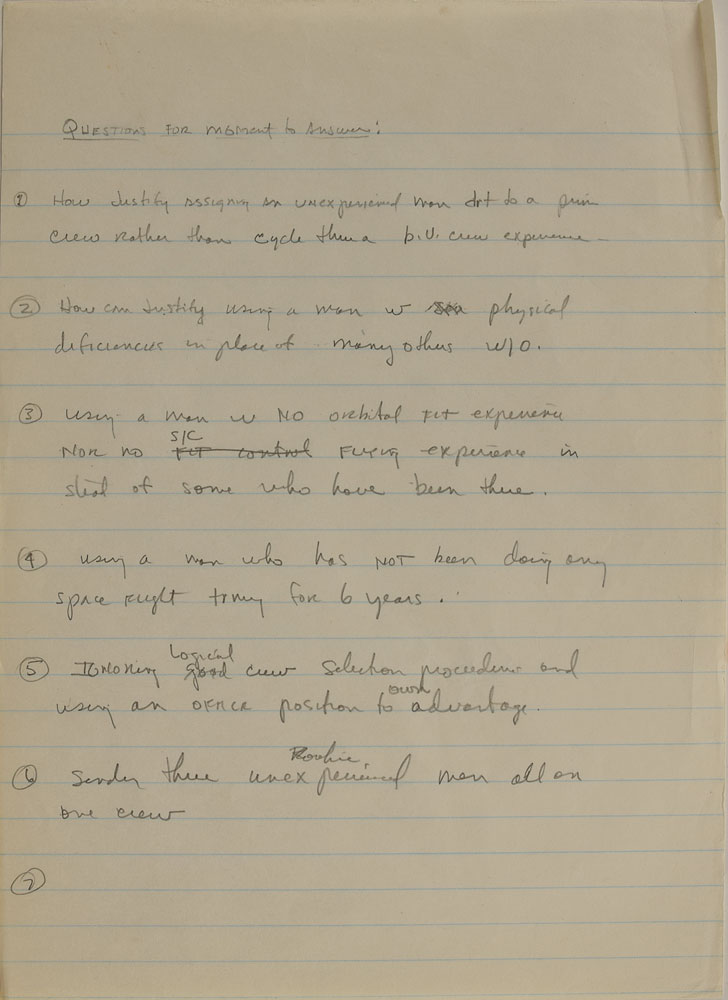 QUESTIONS FOR MGMENT to Answer:
① How Justify assigning an unexperienced man drt to a prim
crew rather than cycle thru a b.U. crew experience –
② How can Justify using a man w physical
deficiencies in place of many others w/o.
③ using a man w NO orbital FLT experience
S/C
NOR no FLT control FLYING experience in
stead of some who have been there.
④ using a man who has NOT been doing any
space flight trning for 6 years.
Logical
⑤ IGNORING good crew selection procedure and
own
using an OFFICE position to advantage.
Rookie
⑥ Sending three unexperienced men all on
one crew
⑦